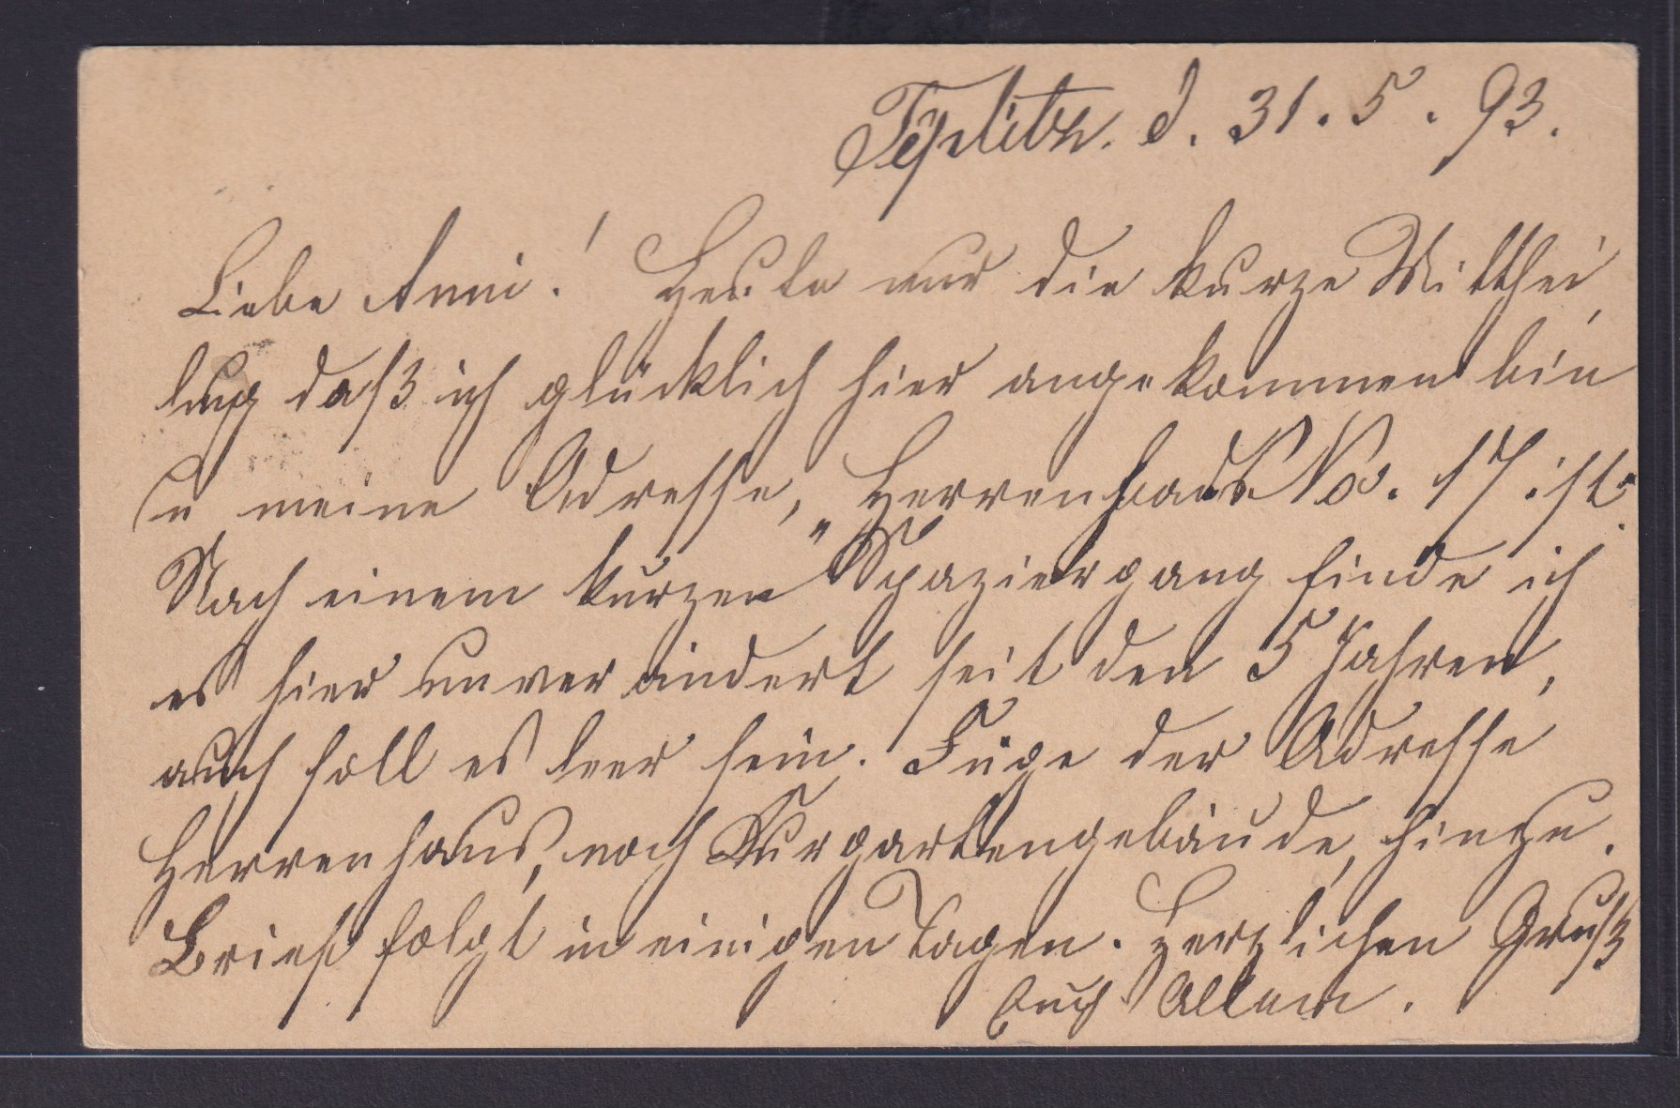 Teplitz. d. 31. 5. 93.
Liebe Anni! Heute nur die kurze Mitthei
lung daß ich glücklich hier angekommen bin
u meine Adresse, „Herrenhaus No. 17 ist.
Nach einem kurzen Spaziergang finde ich
es hier unverändert seit den 5 Jahren,
auch soll es leer sein. Füge der Adresse
Herrenhaus, noch Kurgartengebäude, hinzu.
Brief folgt in einigen Tagen. Herzlichen Gruß
Euch Allen.